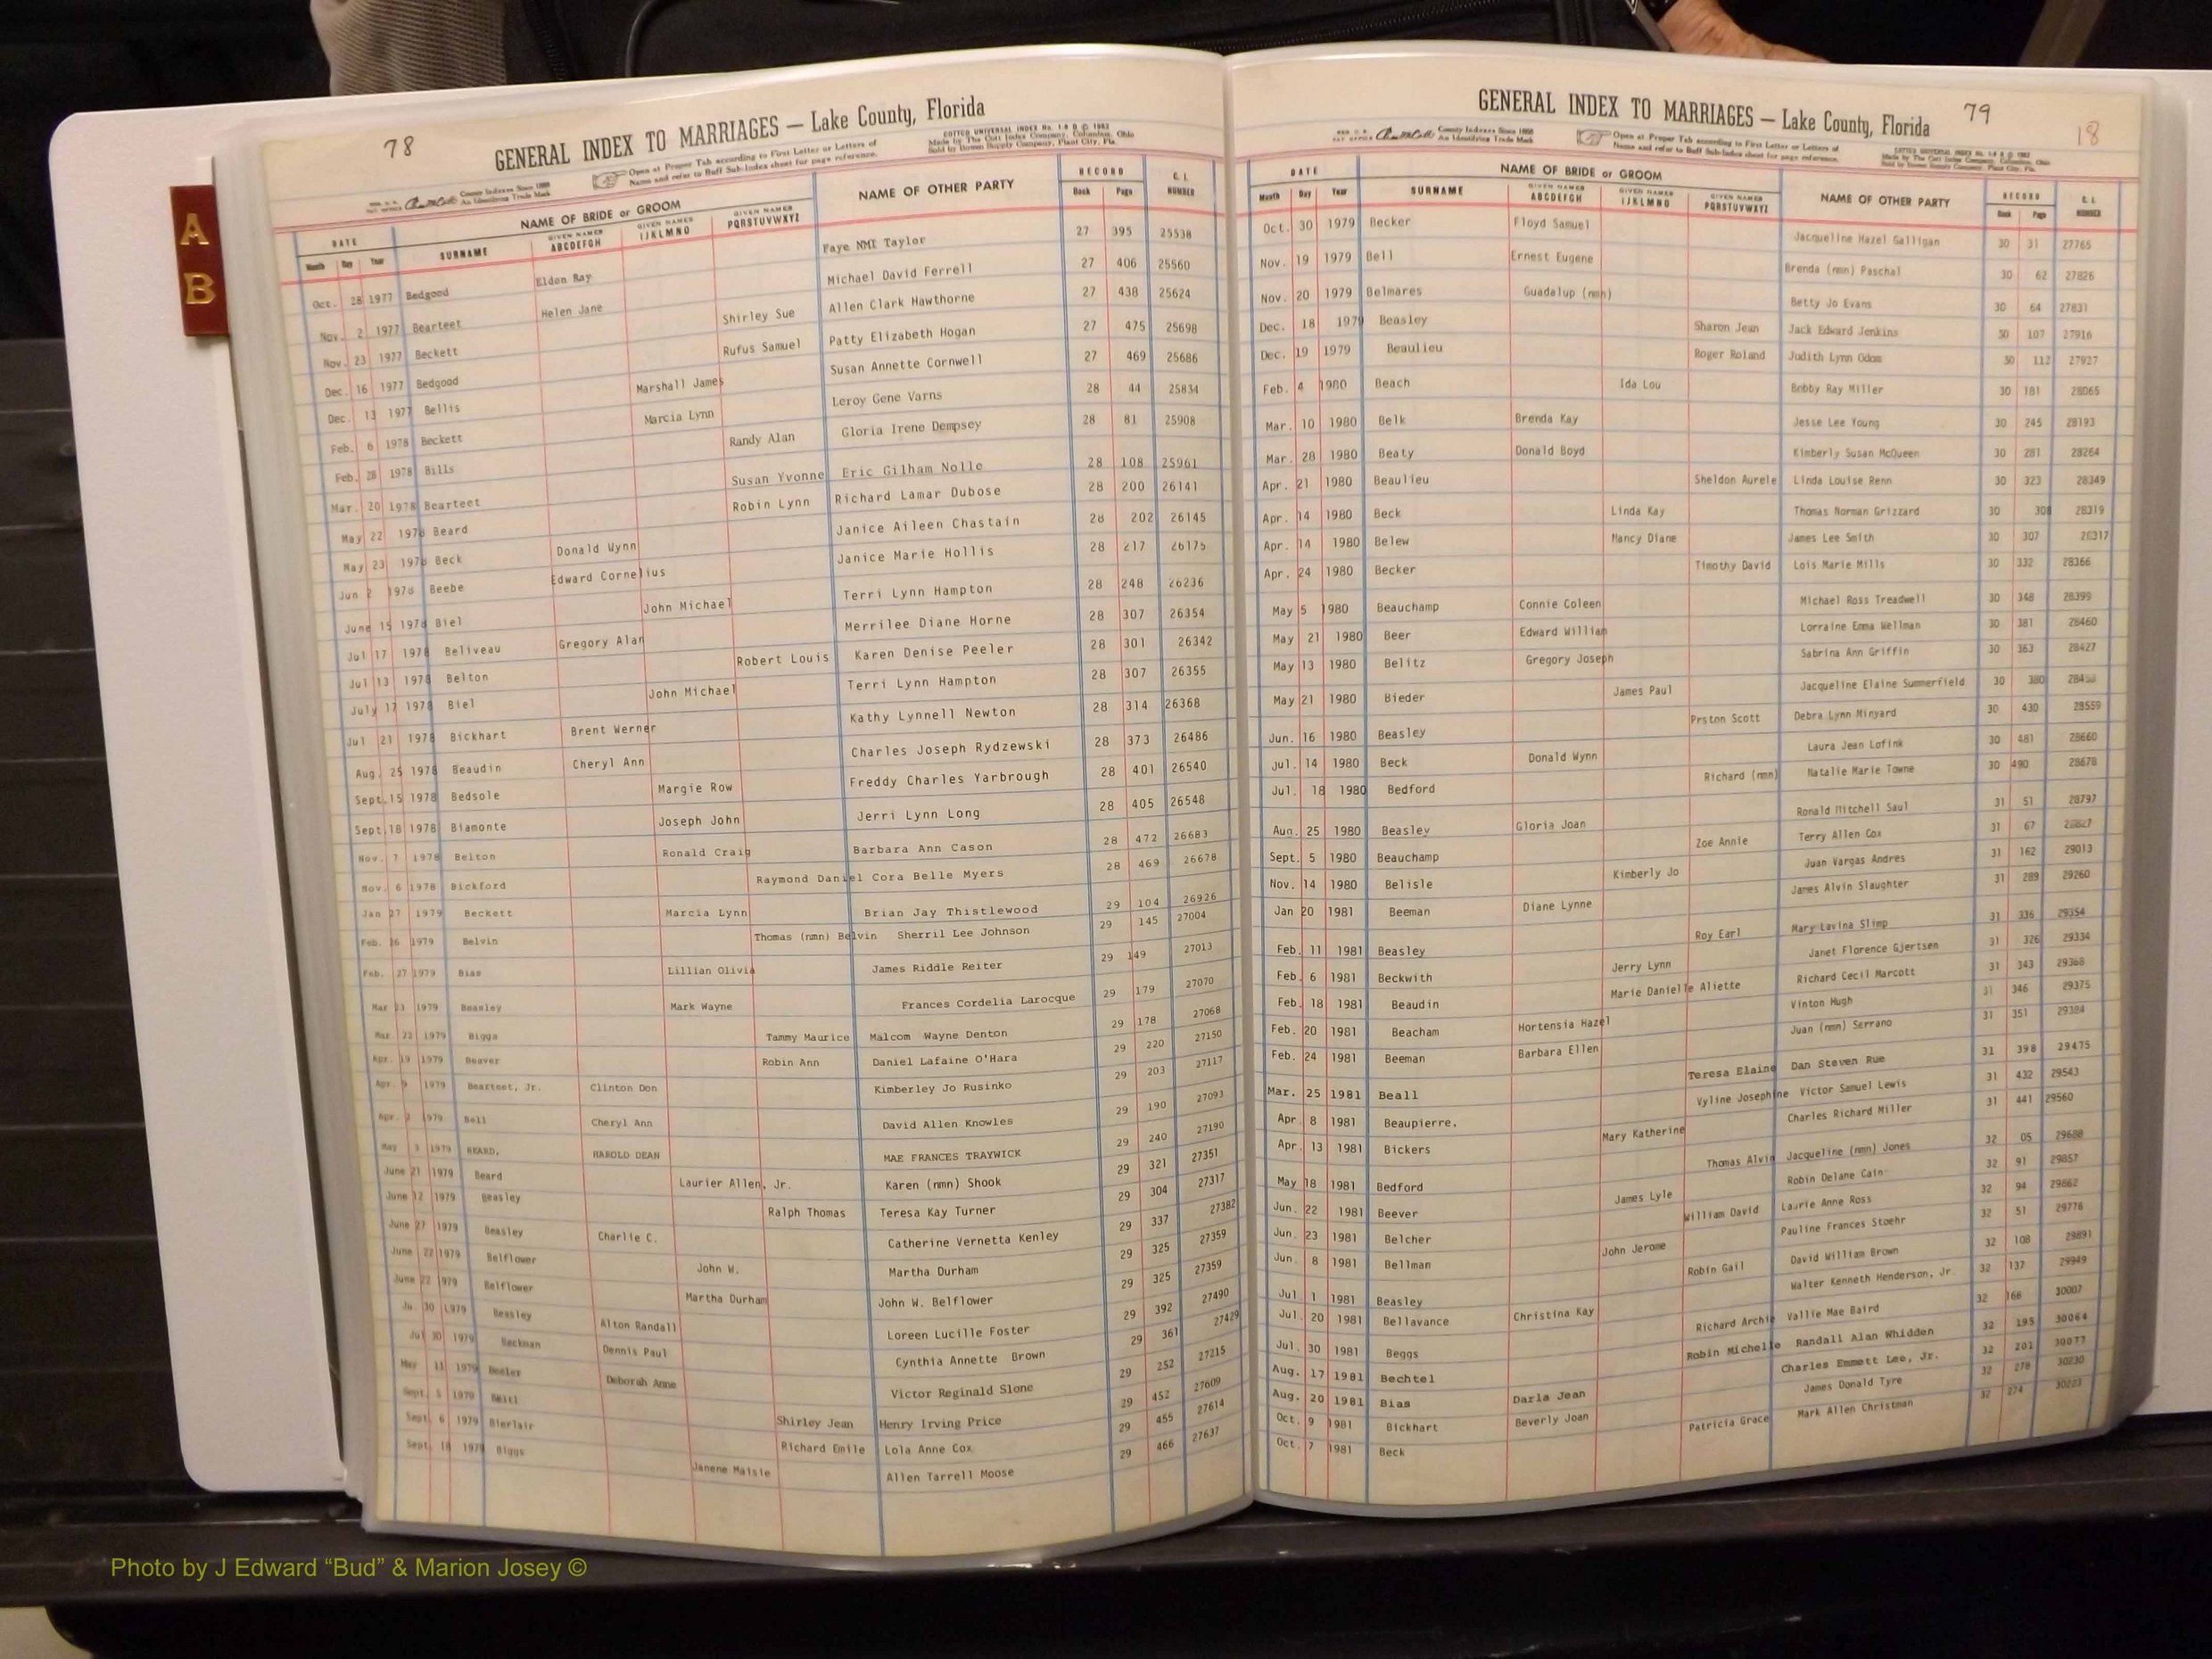 A
B
78
GENERAL INDEX TO MARRIAGES — Lake County, Florida
County Indexes Since 1888
An Identifying Trade Mark
Open at Proper Tab according to First Letter or Letters of
Name and refer to Buff Sub-Index sheet for page reference.
Made by The Cott Index Company, Columbus, Ohio
Sold by Bowen Supply Company, Plant City, Fla.
DATE NAME OF BRIDE or GROOM NAME OF OTHER PARTY RECORD
Month Day Year SURNAME GIVEN NAMES ABCDEFGH GIVEN NAMES IJKLMNO GIVEN NAMES PQRSTUVWXYZ Book Page NUMBER
Oct. 28 1977 Bedgood Eldon Ray Faye NMI Taylor 27 395 25538
Nov. 2 1977 Bearteet Helen Jane Michael David Ferrell 27 406 25560
Nov. 23 1977 Beckett Shirley Sue Allen Clark Hawthorne 27 438 25624
Dec. 16 1977 Bedgood Rufus Samuel Patty Elizabeth Hogan 27 475 25698
Dec. 13 1977 Bellis Marshall James Susan Annette Cornwell 27 469 25686
Feb. 6 1978 Beckett Marcia Lynn Leroy Gene Varns 28 44 25834
Feb. 28 1978 Bills Randy Alan Gloria Irene Dempsey 28 81 25908
Mar. 20 1978 Bearteet Susan Yvonne Eric Gilham Nolle 28 108 25961
May 22 1978 Beard Robin Lynn Richard Lamar Dubose 28 200 26141
May 23 1978 Beck Donald Wynn Janice Aileen Chastain 28 202 26145
Jun 2 1978 Beebe Edward Cornelius Janice Marie Hollis 28 217 26175
June 15 1978 Biel John Michael Terri Lynn Hampton 28 248 26236
Jul 17 1978 Beliveau Gregory Alan Merrilee Diane Horne 28 307 26354
Jul 13 1978 Belton Robert Louis Karen Denise Peeler 28 301 26342
July 17 1978 Biel John Michael Terri Lynn Hampton 28 307 26355
Jul 21 1978 Bickhart Brent Werner Kathy Lynnell Newton 28 314 26368
Aug. 25 1978 Beaudin Cheryl Ann Charles Joseph Rydzewski 28 373 26486
Sept. 15 1978 Bedsole Margie Row Freddy Charles Yarbrough 28 401 26540
Sept. 18 1978 Biamonte Joseph John Jerri Lynn Long 28 405 26548
Nov. 7 1978 Belton Ronald Craig Barbara Ann Cason 28 472 26683
Nov. 6 1978 Bickford Raymond Daniel Cora Belle Myers 28 469 26678
Jan 27 1979 Beckett Marcia Lynn Brian Jay Thistlewood 29 104 26926
Feb. 26 1979 Belvin Thomas (nmn) Belvin Sherril Lee Johnson 29 145 27004
Feb. 27 1979 Bias Lillian Olivia James Riddle Reiter 29 149 27013
Mar 23 1979 Beasley Mark Wayne Frances Cordelia Larocque 29 179 27070
Mar. 23 1979 Biggs Tammy Maurice Malcom Wayne Denton 29 178 27068
Apr. 19 1979 Beaver Robin Ann Daniel Lafaine O'Hara 29 220 27150
Apr. 9 1979 Bearteet, Jr. Clinton Don Kimberley Jo Rusinko 29 203 27117
Apr. 2 1979 Bell Cheryl Ann David Allen Knowles 29 190 27093
May 3 1979 BEARD, HAROLD DEAN MAE FRANCES TRAYWICK 29 240 27190
June 21 1979 Beard Laurier Allen, Jr. Karen (nmn) Shook 29 321 27351
June 12 1979 Beasley Ralph Thomas Teresa Kay Turner 29 304 27317
June 27 1979 Beasley Charlie C. Catherine Vernetta Kenley 29 337 27382
June 22 1979 Belflower John W. Martha Durham 29 325 27359
June 22 1979 Belflower Martha Durham John W. Belflower 29 325 27359
30 1979 Beasley Alton Randall Loreen Lucille Foster 29 392 27490
Jul 30 1979 Beckman Dennis Paul Cynthia Annette Brown 29 361 27429
May 11 1979 Beeler Deborah Anne Victor Reginald Slone 29 252 27215
Sept. 5 1979 Shirley Jean Henry Irving Price 29 452 27609
Sept. 6 1979 Bierlair Richard Emile Lola Anne Cox 29 455 27614
Sept. 18 1979 Biggs Janene Maisie Allen Tarrell Moose 29 466 27637
GENERAL INDEX TO MARRIAGES — Lake County, Florida 79
18
County Indexes Since 1888
An Identifying Trade Mark
Open at Proper Tab according to First Letter or Letters of
Name and refer to Buff Sub-Index sheet for page reference.
DATE NAME OF BRIDE or GROOM NAME OF OTHER PARTY RECORD
Month Day Year SURNAME GIVEN NAMES ABCDEFGH GIVEN NAMES IJKLMNO GIVEN NAMES PQRSTUVWXYZ Book Page NUMBER
Oct. 30 1979 Becker Floyd Samuel Jacqueline Hazel Galligan 30 31 27765
Nov. 19 1979 Bell Ernest Eugene Brenda (nmn) Paschal 30 62 27826
Nov. 20 1979 Belmares Guadalup (nmn) Betty Jo Evans 30 64 27831
Dec. 18 1979 Beasley Sharon Jean Jack Edward Jenkins 30 107 27916
Dec. 19 1979 Beaulieu Roger Roland Judith Lynn Odom 30 112 27927
Feb. 4 1980 Beach Ida Lou Bobby Ray Miller 30 181 28065
Mar. 10 1980 Belk Brenda Kay Jesse Lee Young 30 245 28193
Mar. 28 1980 Beaty Donald Boyd Kimberly Susan McQueen 30 281 28264
Apr. 21 1980 Beaulieu Sheldon Aurele Linda Louise Renn 30 323 28349
Apr. 14 1980 Beck Linda Kay Thomas Norman Grizzard 30 308 28319
Apr. 14 1980 Belew Nancy Diane James Lee Smith 30 307 28317
Apr. 24 1980 Becker Timothy David Lois Marie Mills 30 332 28366
May 5 1980 Beauchamp Connie Coleen Michael Ross Treadwell 30 348 28399
May 21 1980 Beer Edward William Lorraine Emma Wellman 30 381 28460
May 13 1980 Belitz Gregory Joseph Sabrina Ann Griffin 30 363 28427
May 21 1980 Bieder James Paul Jacqueline Elaine Summerfield 30 380
Jun. 16 1980 Beasley Prston Scott Debra Lynn Minyard 30 430 28559
Jul. 14 1980 Beck Donald Wynn Laura Jean Lofink 30 481 28660
Jul. 18 1980 Bedford Richard (nmn) Natalie Marie Towne 30 490 28678
Aug. 25 1980 Beasley Gloria Joan Ronald Mitchell Saul 31 51 28797
Sept. 5 1980 Beauchamp Zoe Annie Terry Allen Cox 31 67 28827
Nov. 14 1980 Belisle Kimberly Jo Juan Vargas Andres 31 162 29013
Jan 20 1981 Beeman Diane Lynne James Alvin Slaughter 31 289 29260
Feb. 11 1981 Beasley Roy Earl Mary Lavina Slimp 31 336 29354
Feb. 6 1981 Beckwith Jerry Lynn Janet Florence Gjertsen 31 326 29334
Feb. 18 1981 Beaudin Marie Danielle Aliette Richard Cecil Marcott 31 343 29368
Feb. 20 1981 Beacham Hortensia Hazel Vinton Hugh 31 346 29375
Feb. 24 1981 Beeman Barbara Ellen Juan (nmn) Serrano 31 351 29384
Mar. 25 1981 Beall Teresa Elaine Dan Steven Rue 31 398 29475
Apr. 8 1981 Beaupierre. Vyline Josephine Victor Samuel Lewis 31 432 29543
Apr. 13 1981 Bickers Mary Katherine Charles Richard Miller 31 441 29560
May 18 1981 Bedford Thomas Alvin Jacqueline (nmn) Jones 32 05 29688
Jun. 22 1981 Beever James Lyle Robin Delane Cain 32 91 29857
Jun. 23 1981 Belcher William David Laurie Anne Ross 32 94 29862
Jun. 8 1981 Bellman John Jerome Pauline Frances Stoehr 32 51 29776
Jul. 1 1981 Beasley Robin Gail David William Brown 32 108 29891
Jul. 20 1981 Bellavance Christina Kay Walter Kenneth Henderson, Jr. 32 137 29949
Jul. 30 1981 Beggs Richard Archie Vallie Mae Baird 32 166 30007
Aug. 17 1981 Bechtel Robin Michelle Randall Alan Whidden 32 195 30064
Aug. 20 1981 Bias Darla Jean Charles Emmett Lee, Jr. 32 201 30077
Oct. 9 1981 Bickhart Beverly Joan James Donald Tyre 32 278 30230
Oct. 7 1981 Beck Patricia Grace Mark Allen Christman 32 274 30223
Photo by J Edward “Bud” & Marion Josey ©